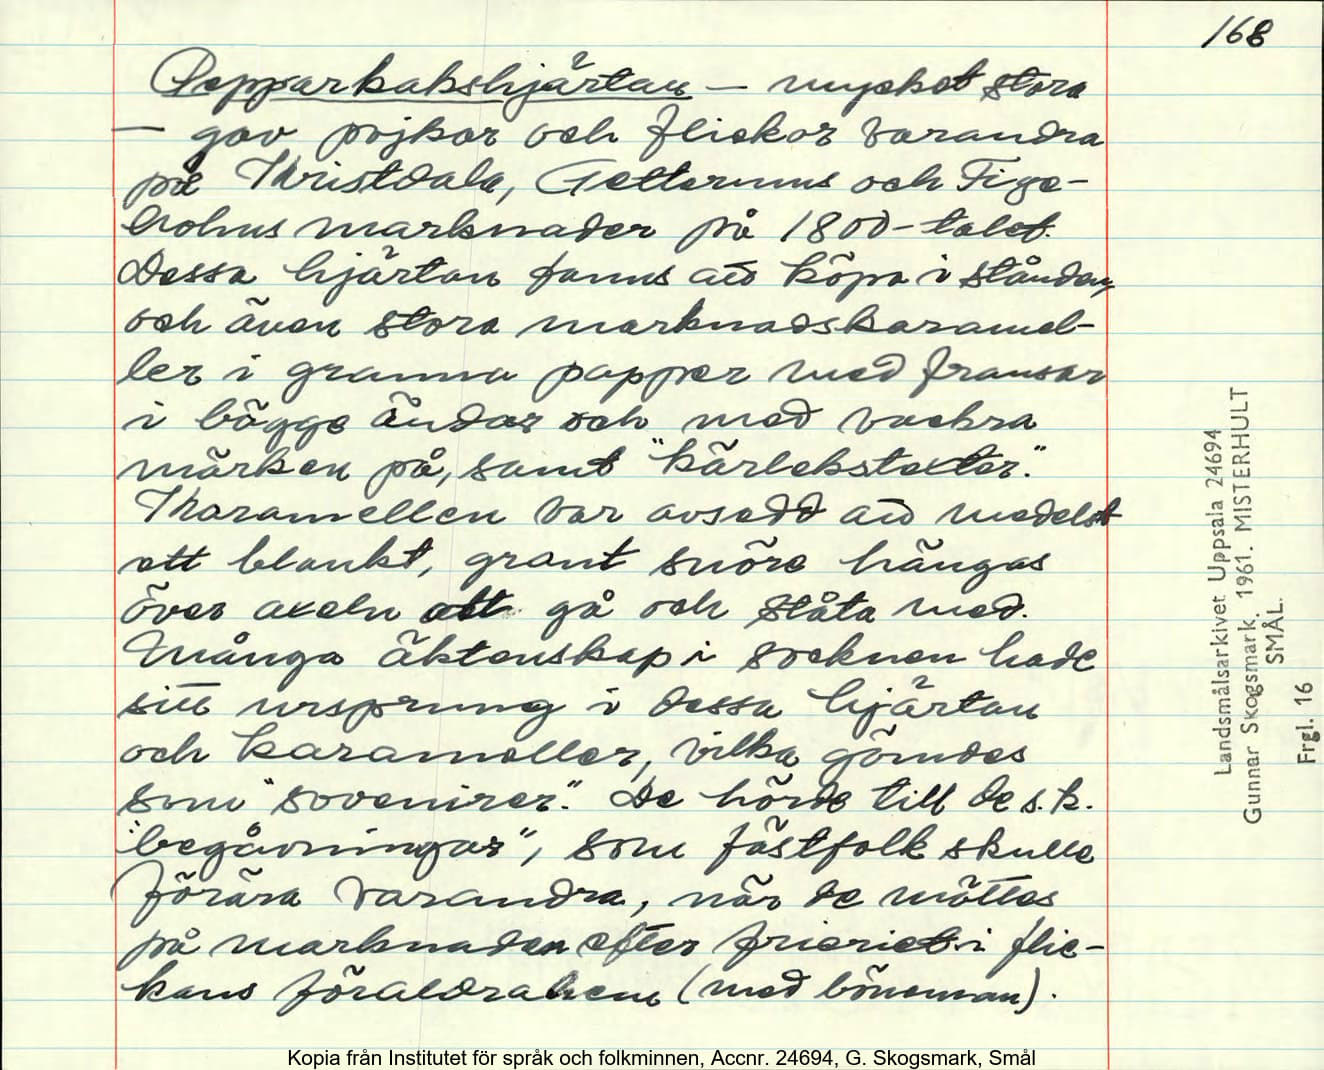 168
Pepparkakshjärtan - mycket stora
- gav pojkar och flickor varandra
på Kristdala, Getterums och Fige-
holms marknader på 1800-talet.
Dessa hjärtan fanns att köpa i stånden,
och även stora marknadskaramel-
ler i granna papper med fransar
i bägge ändar och med vackra
märken på, samt "kärlekstexter."
Karamellen var avsedd att medelst
ett blankt, grant snöre hängas
över axeln att gå och ståta med.
Många äktenskap i socknen hade
sitt ursprung i dessa hjärtan
och karameller, vilka gömdes
som "sovenirer." De hörde till de s.k.
"begåvningar", som fästfolk skulle
förära varandra, när de möttes
på marknaden efter frieriet i flic-
kans föräldrahem (med böneman).
Landsmålsarkivet Uppsala 24694
Gunnar Skogsmark. 1961. MISTERHULT
SMÅL.
Frgl. 16
Kopia från Institutet för språk och folkminnen, Accnr. 24694, G. Skogsmark, Smål